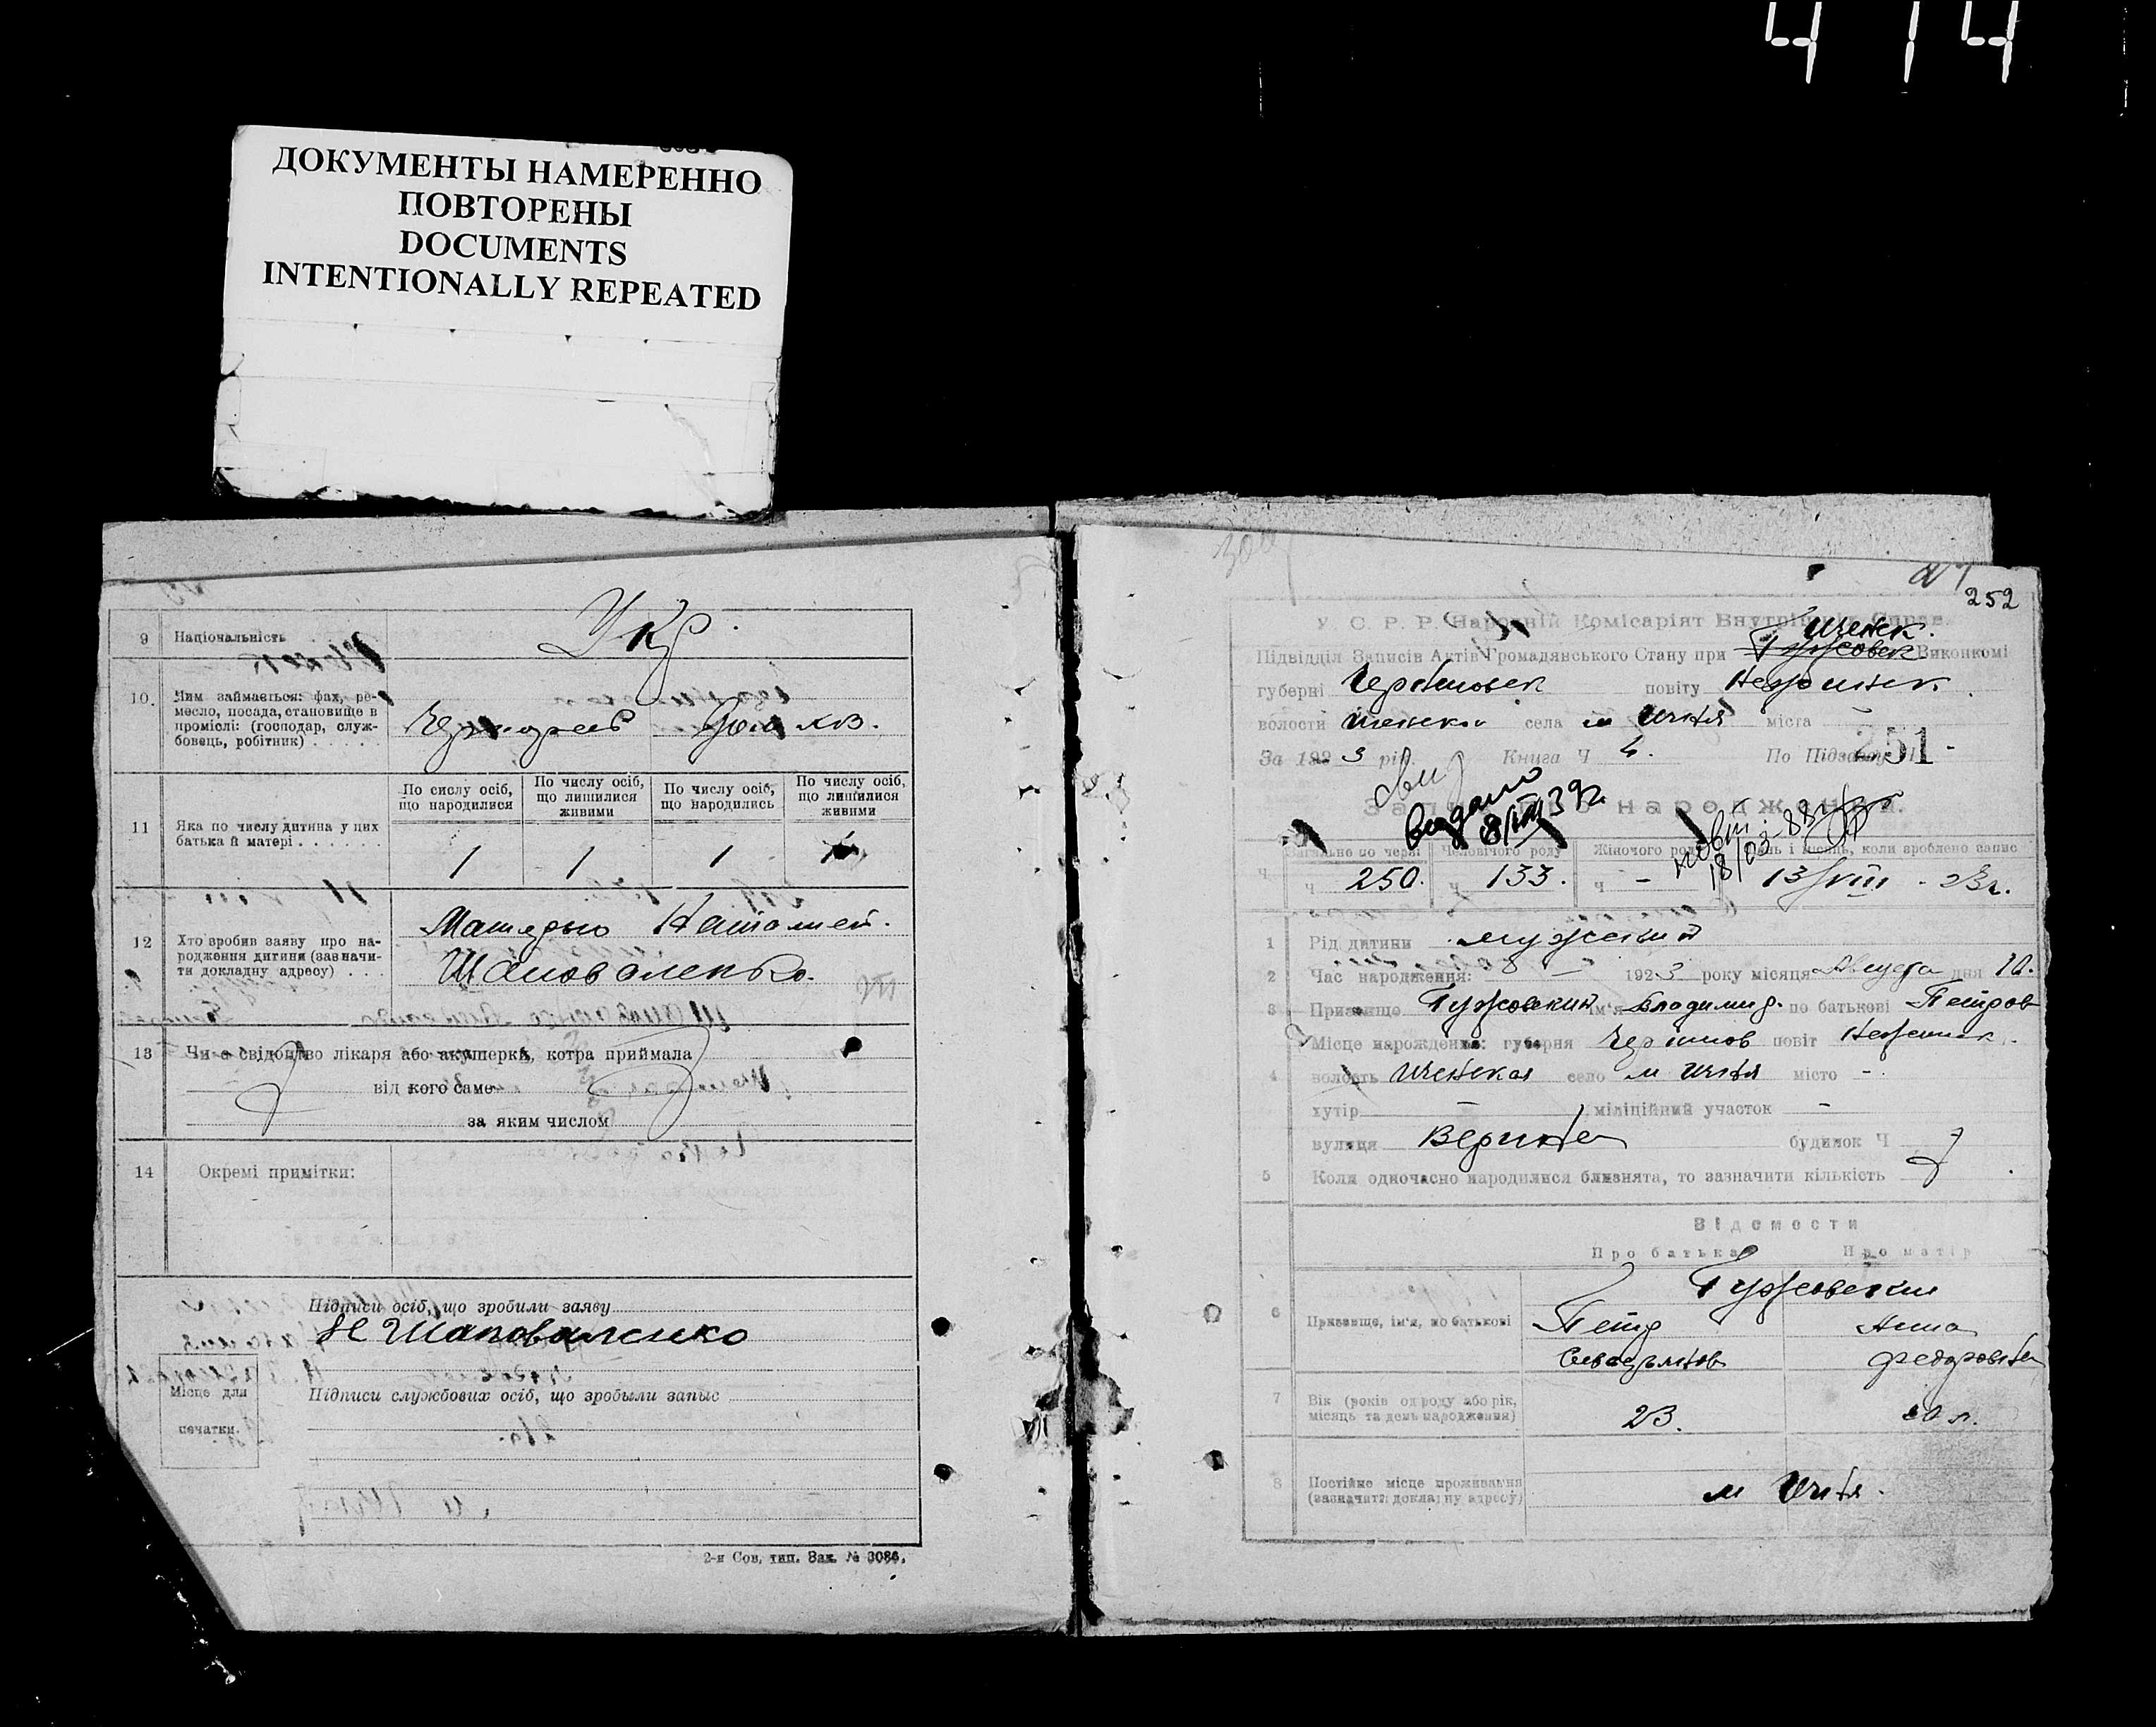 414
ДОКУМЕНТЫ НАМЕРЕННО
ПОВТОРЕНЫ
DOCUMENTS
INTENTIONALLY REPEATED
9 Національність
Укр.
10. Чим займається: фах, ре-
месло, посада, становище в
проміслі: (господар, служ-
бовець, робітник)
Чернораб Дом хоз.
11 Яка по числу дитина у цих
батька й матері
По сислу осіб, що народилися
По числу осіб, що лишилися живими
По числу осіб, що народились
По числу осіб, що лишилися живими
1 1 1 1
12 Хто зробив заяву про на-
родження дитини (зазначи-
ти докладну адресу)
Наталией
Шаповаленко.
13 Чи є свідоцтво лікаря або акушерки, котра приймала
від кого саме
за яким числом
14 Окремі примітки:
Підписи осіб, що зробили заяву
Н Шаповаленко
Місце для
печатки.
Підписи службових осіб, що зробыли запыс
2-я Сов. тип. Зак. № 3086.
252
У. С. Р. Р. Народній Комісаріят Внутрішніх Справ.
Иченск.
Підвідділ Записів Актів Громадянського Стану при Виконкомі
губерні Черниговск повіту Нежинск.
волости Иченской села м Ичня міста
За 1923 рік. Книга Ч 4. По Підвідділу
251
Запис про народження.
видано
8/VIII 39г.
повт.
18/03-88г
Загально по черзі Чоловічого роду Жіночого роду День і місяць, коли зроблено запис
ч 250. ч 133. ч - 13/VIII - 23г.
1 Рід дитини мужский
2 Час народження: 1923 року місяця Августа дня 10.
3 Призвище Гужовский ім'я Владимир. по батькові Петров
4 Місце народження: губерня Чернигов повіт Нежинск.
волость Иченская село м Ичня місто -
хутір - міліційний участок -
вулиця будинок Ч
5 Коли одночасно народилися близнята, то зазначити кількість
Відомости
Про батька Про матір
6 Призвище, ім'я, по батькові
Гужовские
Петр Анна
Федоровна
7 Вік (років од роду або рік,
місяць та день народження)
23. 20 л.
8 Постійне місце проживання
(зазначити докладну адресу)
м Ичня.